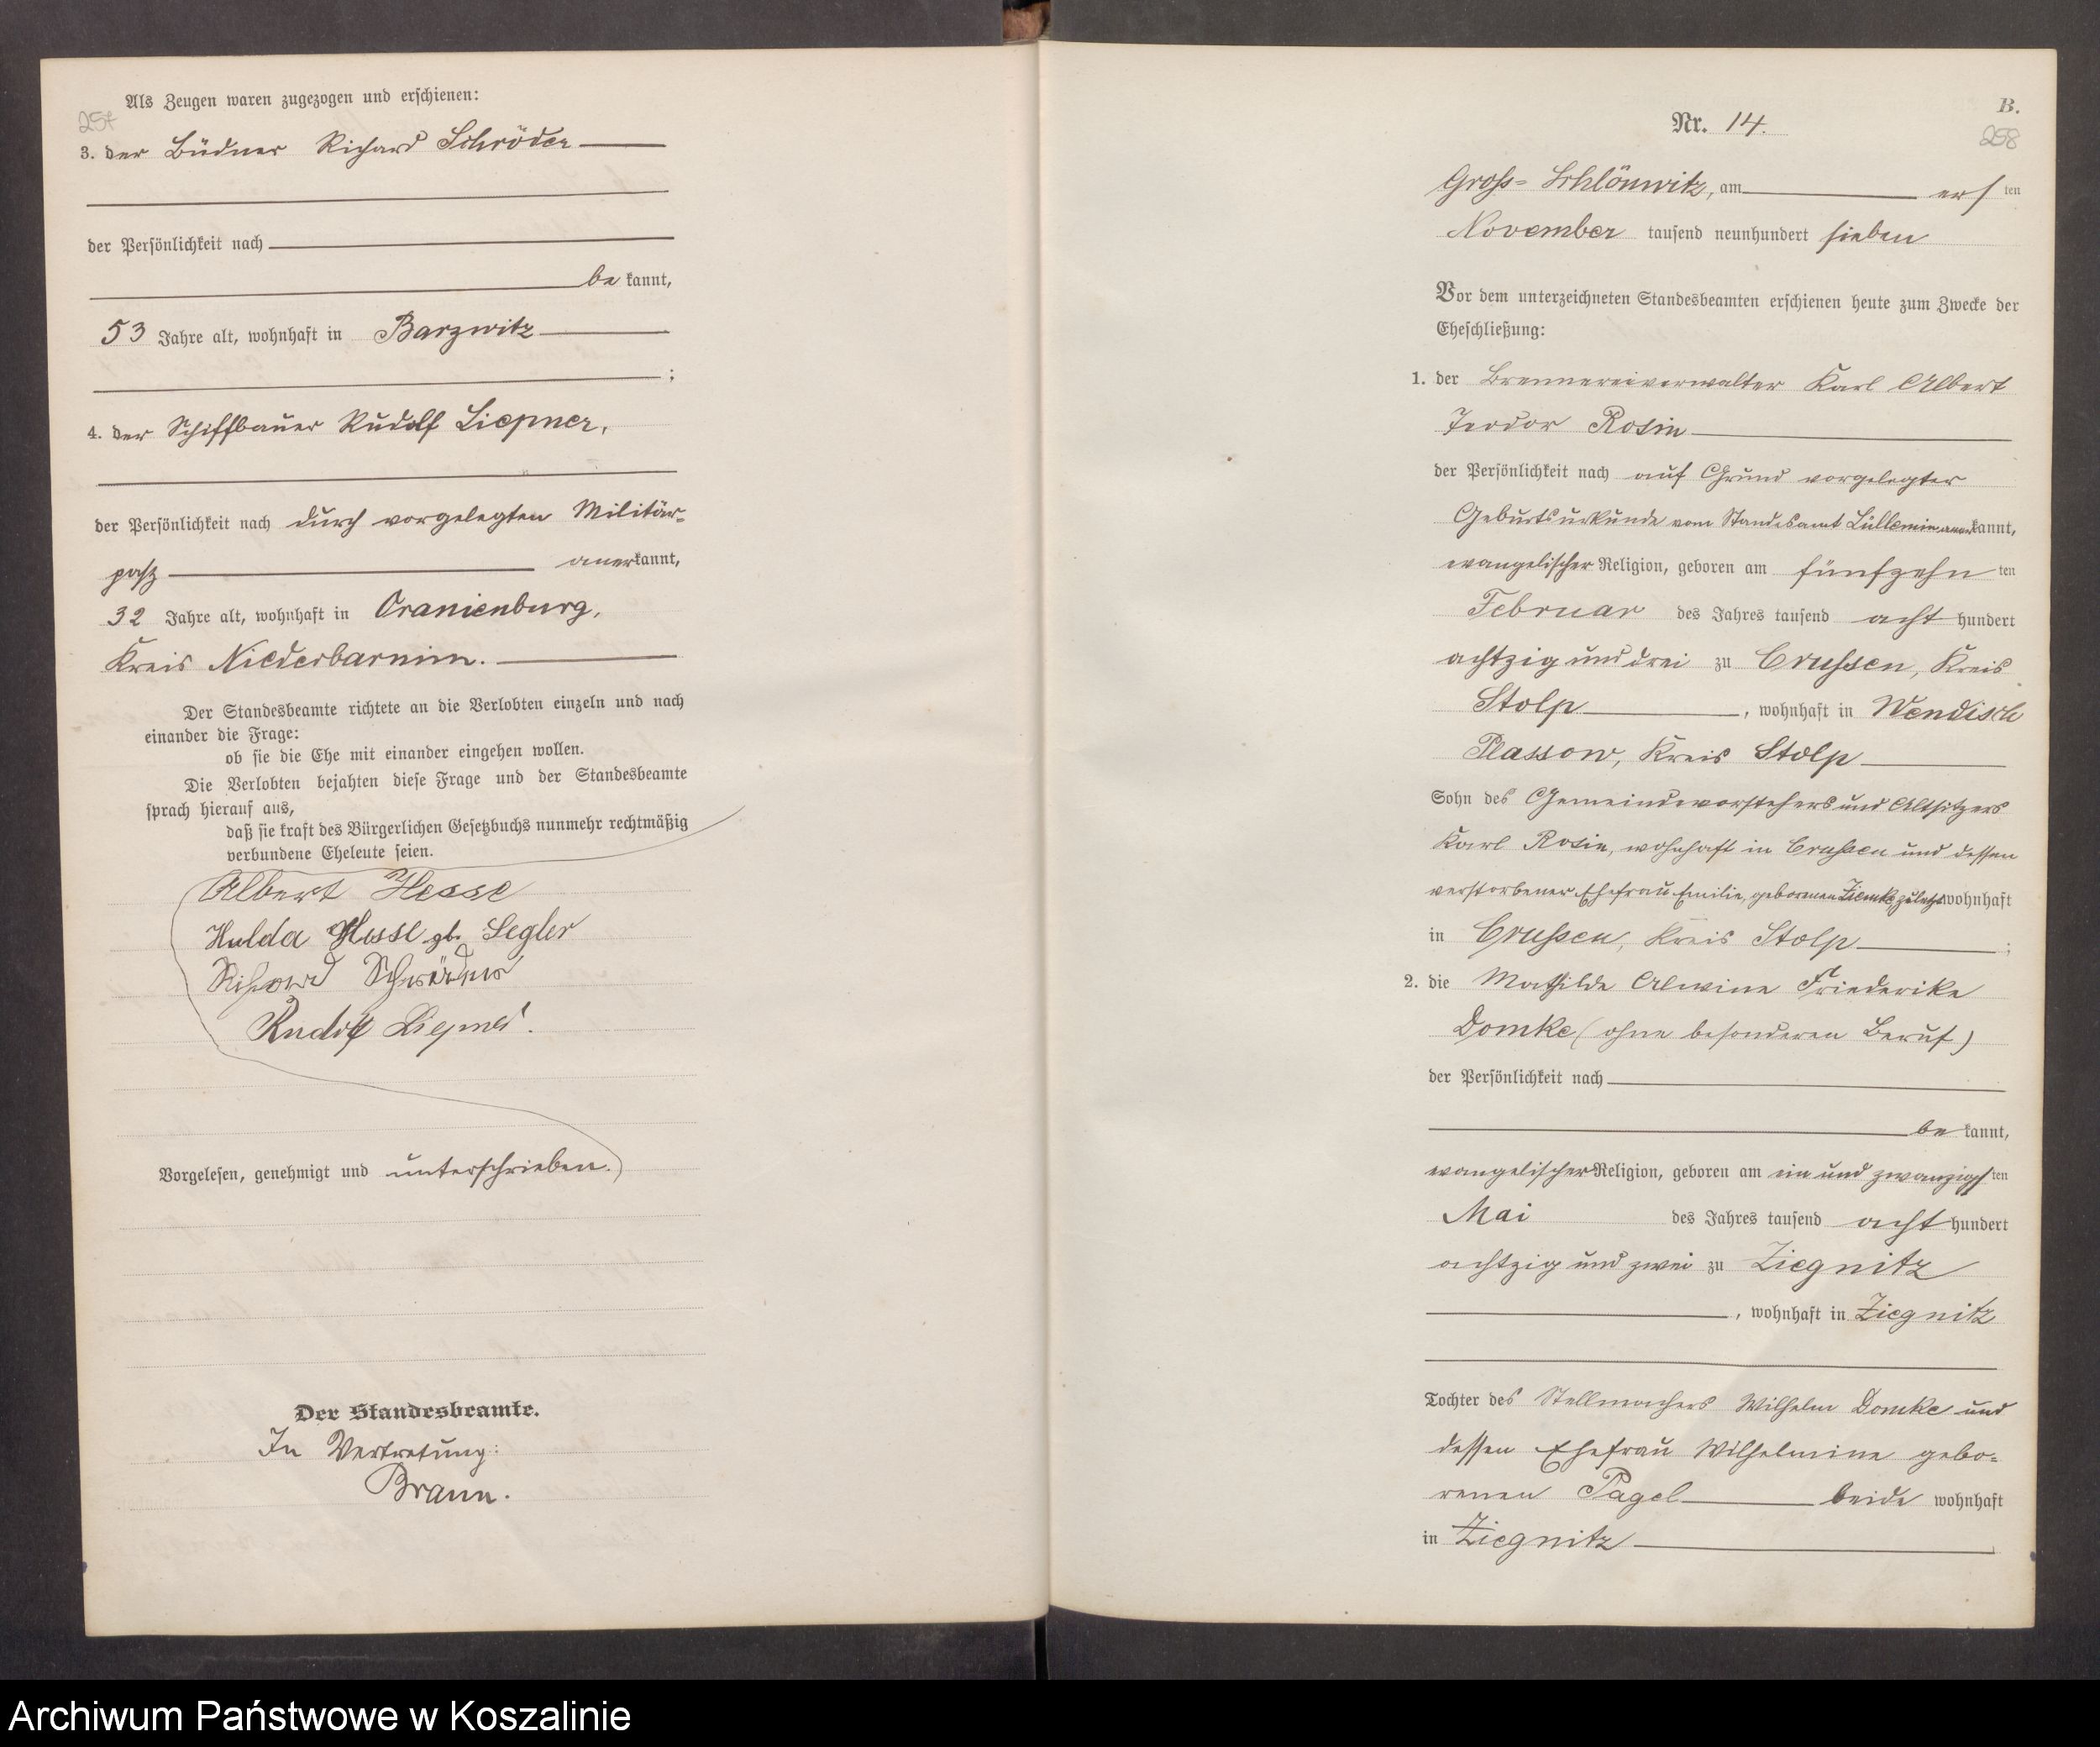 Als Zeugen waren zugezogen und erschienen:
257
3. der Büdner Richard Schröder
der Persönlichkeit nach
be kannt,
53 Jahre alt, wohnhaft in Barzwitz
;
4. der Schiffbauer Rudolf Liepner,
der Persönlichkeit nach durch vorgelegten Militär-
paß anerkannt,
32 Jahre alt, wohnhaft in Oranienburg,
Kreis Niederbarnim.
Der Standesbeamte richtete an die Verlobten einzeln und nach
einander die Frage:
ob sie die Ehe mit einander eingehen wollen.
Die Verlobten bejahten diese Frage und der Standesbeamte
sprach hierauf aus,
daß sie kraft des Bürgerlichen Gesetzbuchs nunmehr rechtmäßig
verbundene Eheleute seien.
Albert Hesse
Hulda Hesse gb. Segler
Richard Schröder
Rudolf Liepner.
Vorgelesen, genehmigt und unterschrieben.
Der Standesbeamte.
In Vertretung:
Braun.
B.
258
Nr. 14.
Groß-Schlönwitz, am ersten
November tausend neunhundert sieben
Vor dem unterzeichneten Standesbeamten erschienen heute zum Zwecke der
Eheschließung:
1. der Brennereiverwalter Karl Albert
Teodor Rosin
der Persönlichkeit nach auf Grund vorgelegter
Geburtsurkunde vom Standesamt Lüllemin anerkannt,
evangelischer Religion, geboren am fünfzehnten
Februar des Jahres tausend acht hundert
achtzig und drei zu Crussen, Kreis
Stolp, wohnhaft in Wendisch
Plassow, Kreis Stolp
Sohn des Gemeindevorstehers und Altsitzers
Karl Rosin, wohnhaft in Crussen und dessen
verstorbener Ehefrau Emilie, geborenen Ziemke, zuletzt wohnhaft
in Crussen, Kreis Stolp;
2. die Mathilde Alwine Friederike
Domke (ohne besonderen Beruf)
der Persönlichkeit nach
be kannt,
evangelischer Religion, geboren am ein und zwanzigsten
Mai des Jahres tausend acht hundert
achtzig und zwei zu Ziegnitz
, wohnhaft in Ziegnitz
Tochter des Stellmachers Wilhelm Domke und
dessen Ehefrau Wilhelmine gebo-
renen Pagel beide wohnhaft
in Ziegnitz
Archiwum Państwowe w Koszalinie